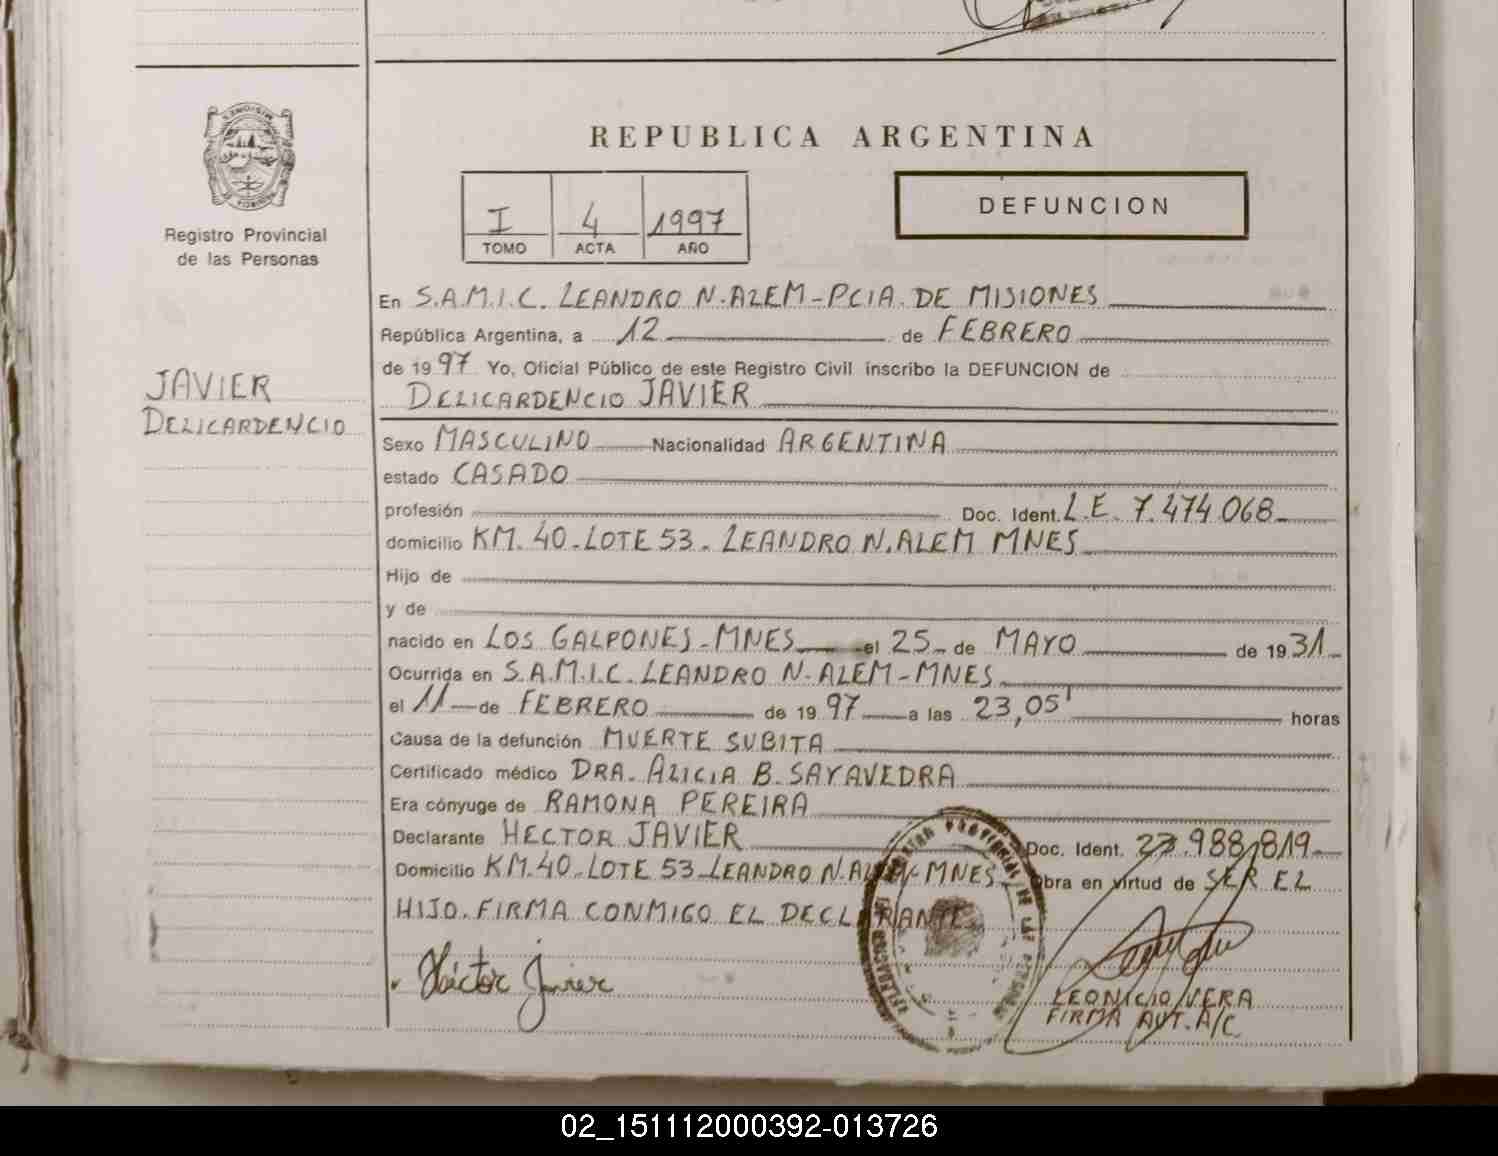 REPUBLICA ARGENTINA
I 4 1997
TOMO ACTA AÑO
DEFUNCION
Registro Provincial
de las Personas
JAVIER
DELICARDENCIO
En S.A.M.I.C. LEANDRO N. ALEM - PCIA. DE MISIONES
República Argentina, a 12 de FEBRERO
de 1997 Yo, Oficial Público de este Registro Civil inscribo la DEFUNCION de
DELICARDENCIO JAVIER
Sexo MASCULINO Nacionalidad ARGENTINA
estado CASADO
profesión Doc. Ident. L.E. 7.474.068
domicilio KM. 40 - LOTE 53 - LEANDRO N. ALEM MNES
Hijo de
y de
nacido en LOS GALPONES - MNES el 25 de MAYO de 1931
Ocurrida en S.A.M.I.C. LEANDRO N. ALEM - MNES
el 11 de FEBRERO de 1997 a las 23,05' horas
Causa de la defunción MUERTE SUBITA
Certificado médico DRA. ALICIA B. SAYAVEDRA
Era cónyuge de RAMONA PEREIRA
Declarante HECTOR JAVIER Doc. Ident. 23.988.819
Domicilio KM. 40 - LOTE 53 - LEANDRO N. ALEM - MNES Obra en virtud de SER EL
HIJO. FIRMA CONMIGO EL DECLARANTE
Héctor Javier
LEONICIO VERA
FIRMA AUT. A/C
02_151112000392-013726